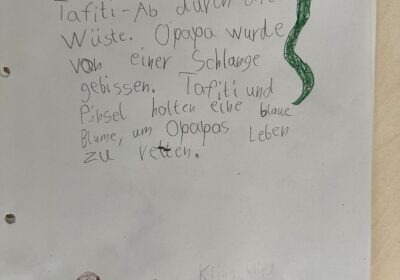 Tafiti-Ab durch die
Wüste. Opapa wurde
von einer Schlange
gebissen. Tafiti und
Pinsel holten eine blaue
Blume, um Opapas Leben
zu retten.